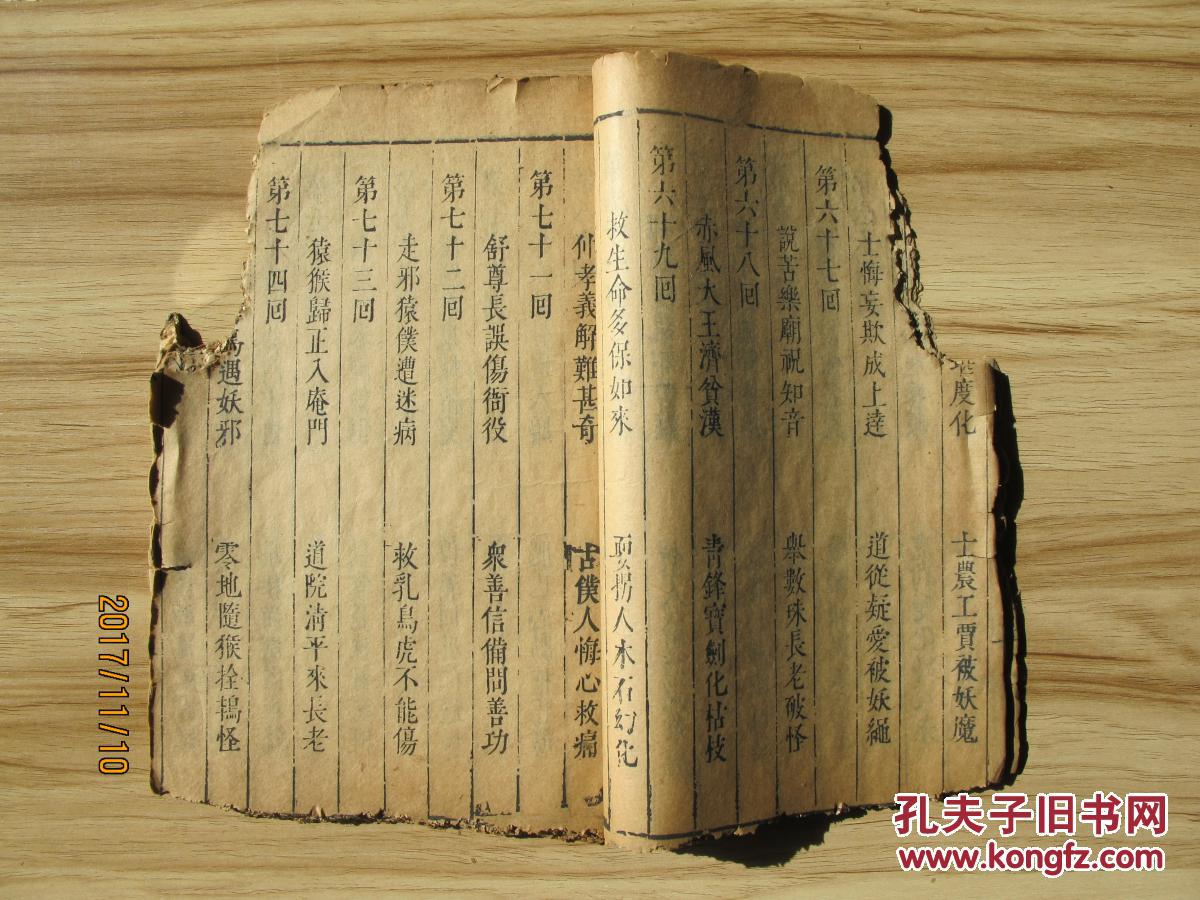 度化　士農工賈被妖魔
士悔妄欺成上達　道從疑愛被妖繩
第六十七回
說苦樂廟祝知音　舉數珠長老破怪
第六十八回
赤風大王濟貧漢　青鋒寶劍化枯枝
第六十九回
救生命多保如來　拐人木石幻化
仲孝義解難甚奇　古僕人悔心救痛
第七十一回
舒尊長誤傷衙役　衆善信備問善功
第七十二回
走邪猿僕遭迷病　救乳鳥虎不能傷
第七十三回
猿猴歸正入庵門　道院清平來長老
第七十四回
遇妖邪　零地隨猴拴鵲怪
2017/11/10
孔夫子旧书网
www.kongfz.com